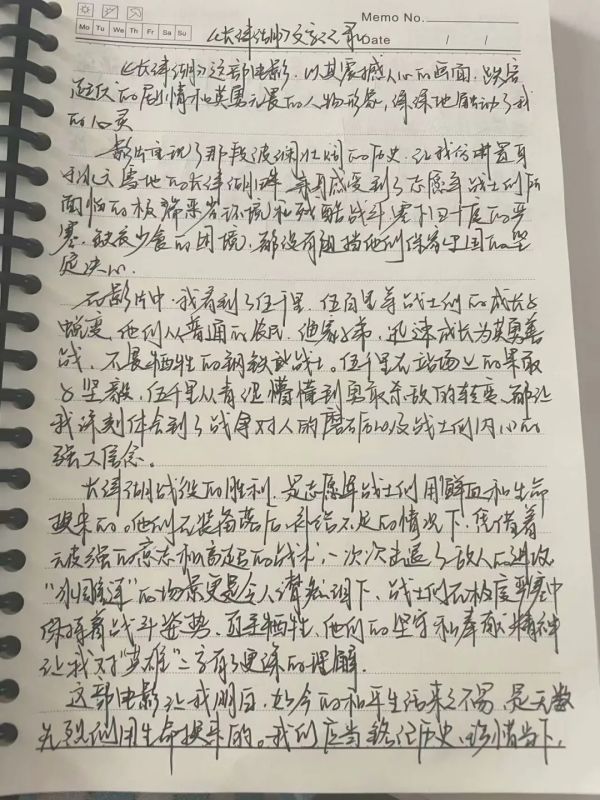 Memo No.
Mo Tu We Th Fr Sa Su
《长津湖》文 Date / /
《长津湖》这部电影，以其震撼人心的画面，跌宕
起伏的剧情和英勇无畏的人物形象，深深地触动了我
的心灵
影片重现了那段波澜壮阔的历史，让我仿佛置身
冰天雪地的长津湖，亲身感受到了志愿军战士们所
面临的极端恶劣环境和残酷战斗零下四十度的严
寒，缺衣少食的困境，都没有阻挡他们保家卫国的坚
定决心.
在影片中，我看到了伍千里，伍百里等战士们的成长与
蜕变，他们从普通的农民、子弟，迅速成长为英勇善
战，不畏牺牲的钢铁战士。伍千里在战场上的果敢
与坚毅，伍千里从青涩懵懂到勇敢杀敌的转变，都让
我深刻体会到了战争对人的磨砺以及战士们内心的
强大信念。
长津湖战役的胜利，是志愿军战士们用鲜血和生命
换来的。他们在装备落后，补给不足的情况下，凭借着
顽强的意志和高超的战术，一次次击退了敌人的进攻
"冰雕连"的场景更是令人潸然泪下，战士们在极度严寒中
保持着战斗姿势，直至牺牲，他们的坚守和奉献精神
让我对"英雄"二字有了更深的理解.
这部电影让我明白，如今的和平生活来之不易，是无数
先烈们用生命换来的。我们应当铭记历史，珍惜当下，